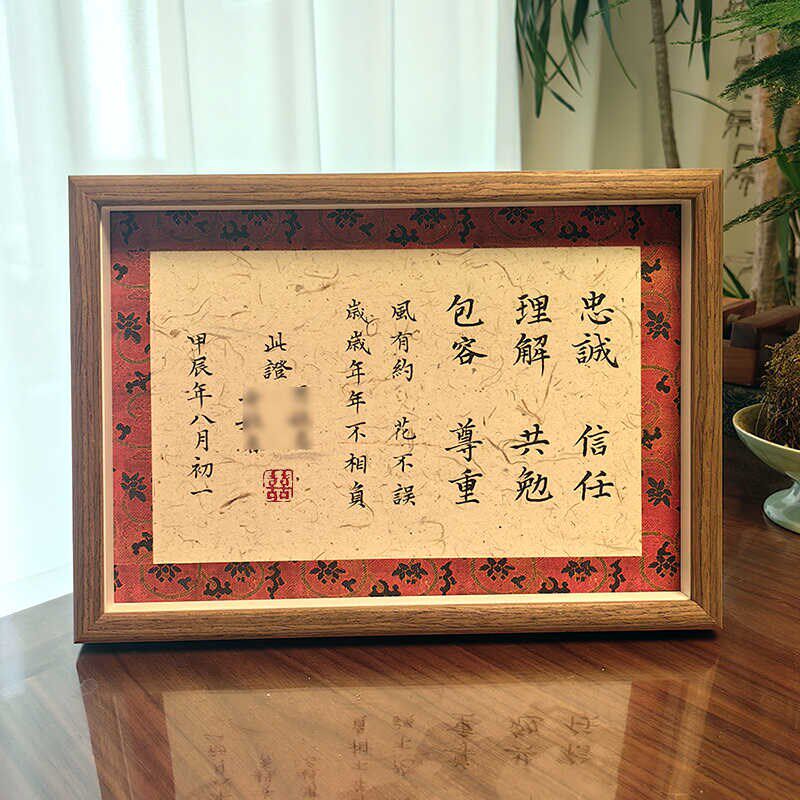 忠誠 信任
理解 共勉
包容 尊重
風有約 花不誤
歲歲年年不相負
此證
甲辰年八月初一
囍